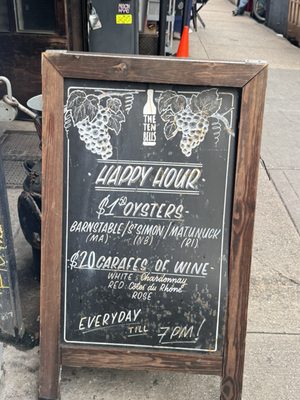 THE
TEN
BELLS
HAPPY HOUR
$1.50 OYSTERS
BARNSTABLE/ST SIMON/MATUNUCK
(MA) (NB) (RI)
$20 CARAFES OF WINE
WHITE: Chardonnay
RED: Côtes du Rhône
ROSE
EVERYDAY TILL 7PM!